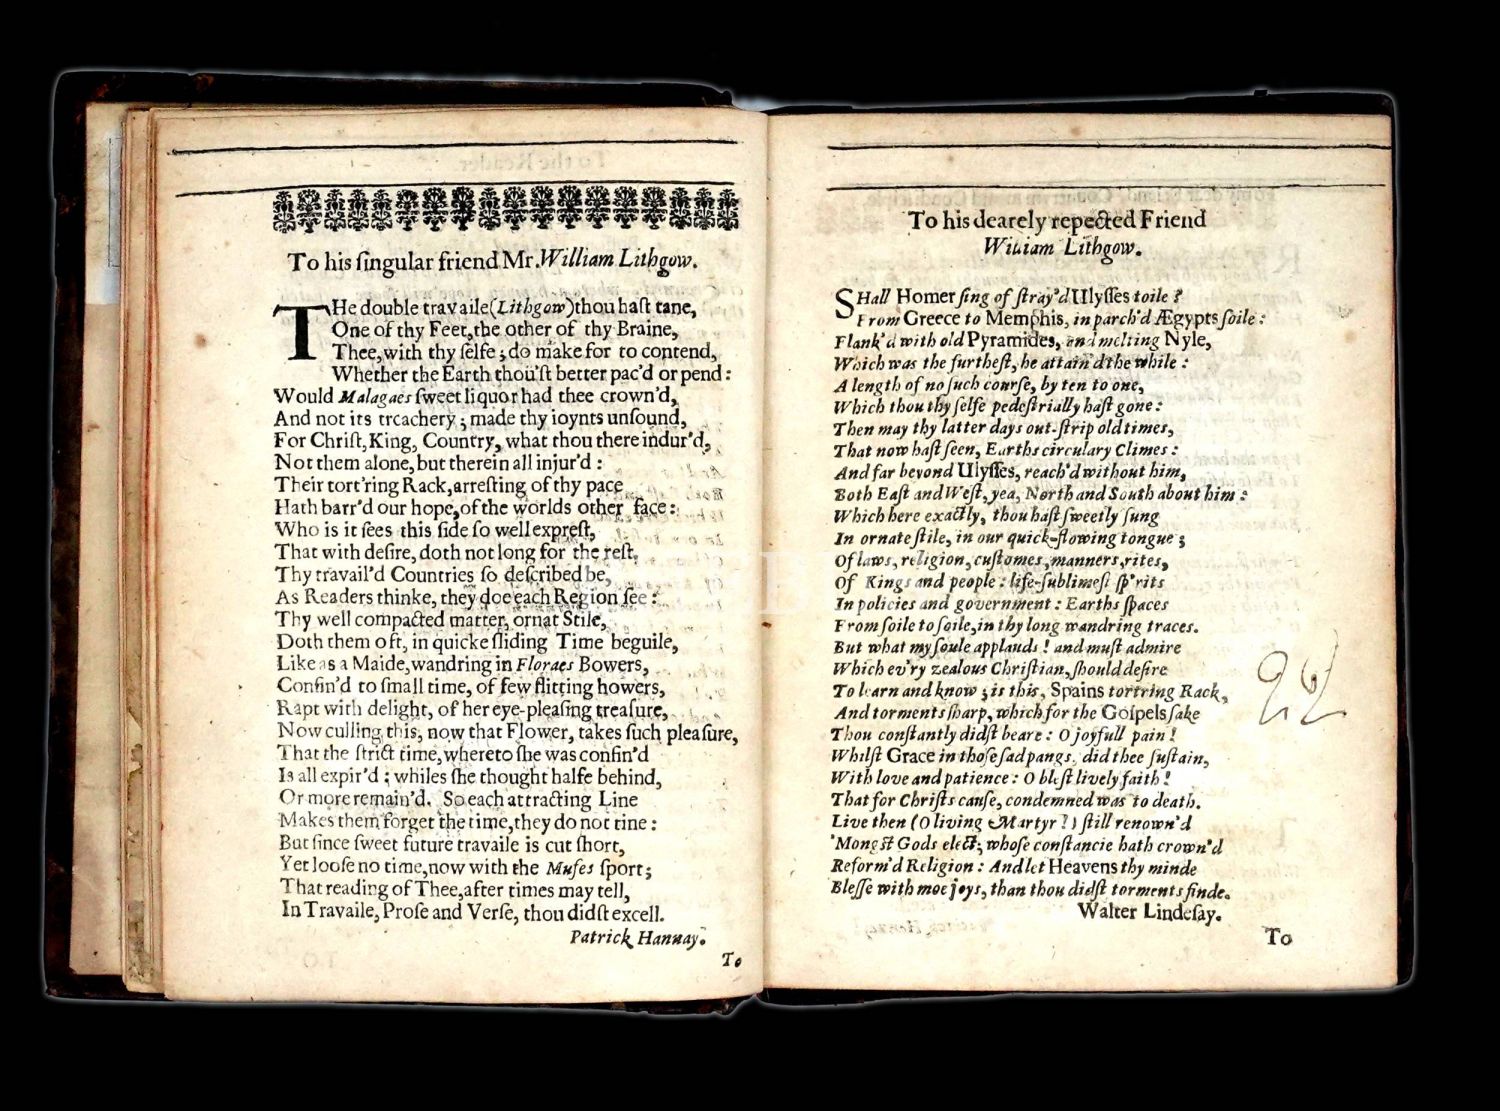 To his ſingular friend Mr. William Lithgow.
THe double travaile (Lithgow) thou haſt tane,
One of thy Feet, the other of thy Braine,
Thee, with thy ſelfe; do make for to contend,
Whether the Earth thou'ſt better pac'd or pend:
Would Malagaes ſweet liquor had thee crown'd,
And not its treachery; made thy ioynts unſound,
For Chriſt, King, Country, what thou there indur'd,
Not them alone, but therein all injur'd:
Their tort'ring Rack, arreſting of thy pace
Hath barr'd our hope, of the worlds other face:
Who is it ſees this ſide ſo well expreſt,
That with deſire, doth not long for the reſt.
Thy travail'd Countries ſo deſcribed be,
As Readers thinke, they doe each Region ſee:
Thy well compacted matter, ornat Stile,
Doth them oft, in quicke ſliding Time beguile,
Like as a Maide, wandring in Floraes Bowers,
Confin'd to ſmall time, of few flitting howers,
Rapt with delight, of her eye-pleaſing treaſure,
Now culling this, now that Flower, takes ſuch pleaſure,
That the ſtrict time, whereto ſhe was confin'd
Is all expir'd; whiles ſhe thought halfe behind,
Or more remain'd. So each attracting Line
Makes them forget the time, they do not tine:
But ſince ſweet future travaile is cut ſhort,
Yet looſe no time, now with the Muſes ſport;
That reading of Thee, after times may tell,
In Travaile, Proſe and Verſe, thou didſt excell.
Patrick Hannay.
To
To his dearely repected Friend
William Lithgow.
SHall Homer ſing of ſtray'd Ulyſſes toile?
From Greece to Memphis, in parch'd Ægypts ſoile:
Flank'd with old Pyramides, and melting Nyle,
Which was the furtheſt, he attain'd the while:
A length of no ſuch courſe, by ten to one,
Which thou thy ſelfe pedeſtrially haſt gone:
Then may thy latter days out-ſtrip old times,
That now haſt ſeen, Earths circulary Climes:
And far beyond Ulyſſes, reach'd without him,
Both Eaſt and Weſt, yea, North and South about him:
Which here exactly, thou haſt ſweetly ſung
In ornate ſtile, in our quick-flowing tongue;
Of laws, religion, cuſtomes, manners, rites,
Of Kings and people: life-ſublimeſt ſp'rits
In policies and government: Earths ſpaces
From ſoile to ſoile, in thy long wandring traces.
But what my ſoule applauds! and muſt admire
Which ev'ry zealous Chriſtian, ſhould deſire
To learn and know; is this, Spains tortring Rack,
And torments ſharp, which for the Goſpels ſake
Thou conſtantly didſt beare: O joyfull pain!
Whilſt Grace in thoſe ſad pangs, did thee ſuſtain,
With love and patience: O bleſt lively faith!
That for Chriſts cauſe, condemned was to death.
Live then (O living Martyr!) ſtill renown'd
'Mongſt Gods elect; whoſe conſtancie hath crown'd
Reform'd Religion: And let Heavens thy minde
Bleſſe with moe joys, than thou didſt torments finde.
Walter Lindeſay.
To